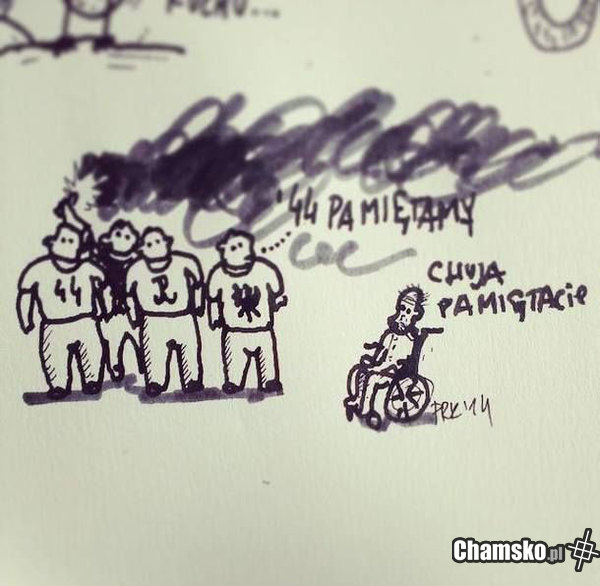 '44 PAMIĘTAMY
CHUJA
PAMIĘTACIE
44
PRK'14
Chamsko.pl